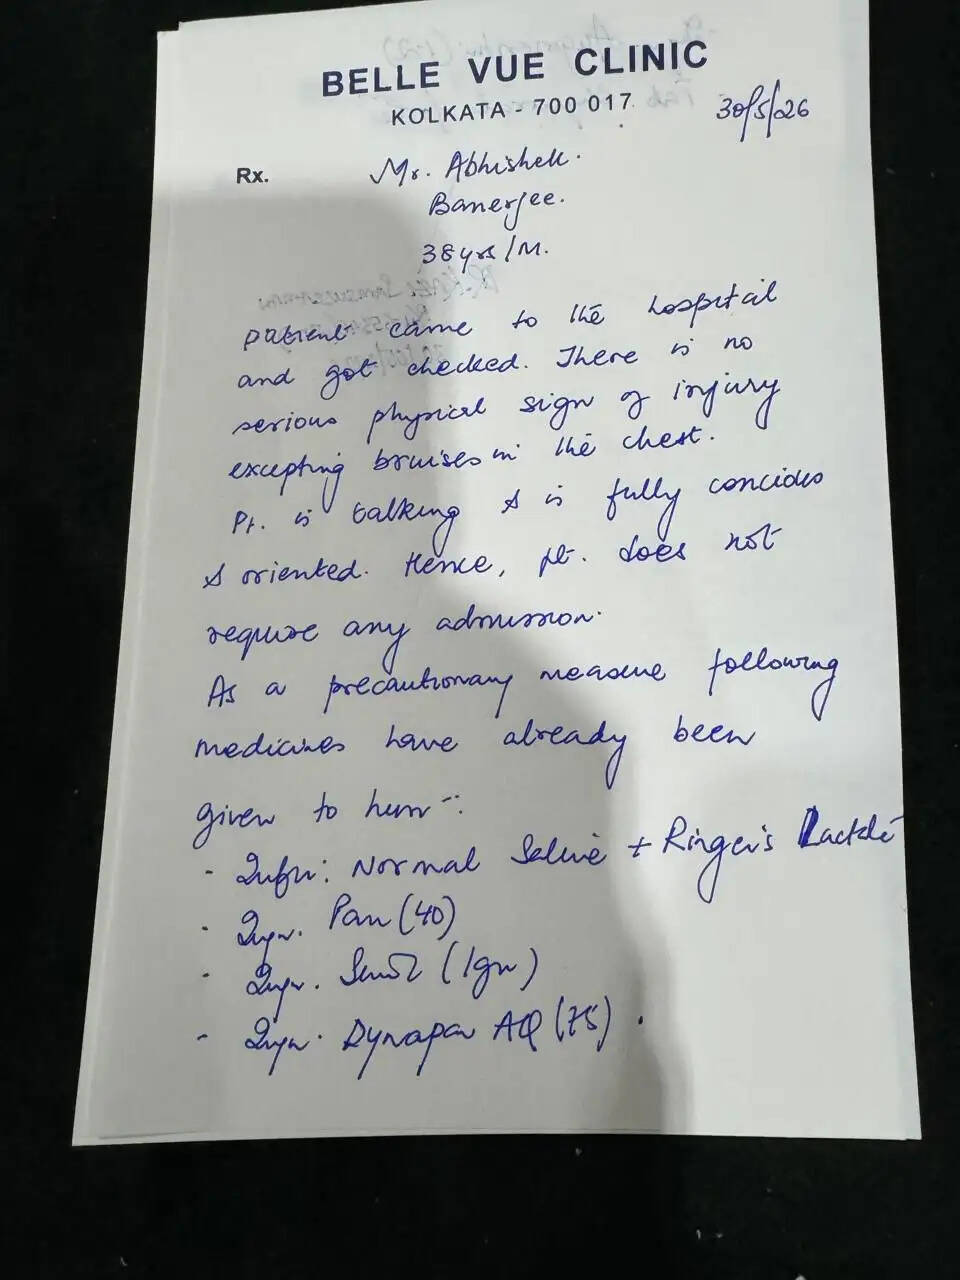 BELLE VUE CLINIC
KOLKATA - 700 017
30/5/26
Rx.
Mr. Abhishek
Banerjee.
38yrs/M.
patient came to the hospital
and got checked. There is no
serious physical sign of injury
excepting bruises in the chest.
Pt. is talking & is fully concious
& oriented. Hence, pt. does not
require any admission.
As a precautionary measure following
medicines have already been
given to him -:
- Infn: Normal Saline + Ringer's Lactate
- Injn. Pan (40)
- Injn. (1gm)
- Injn. Dynapar AQ (75).